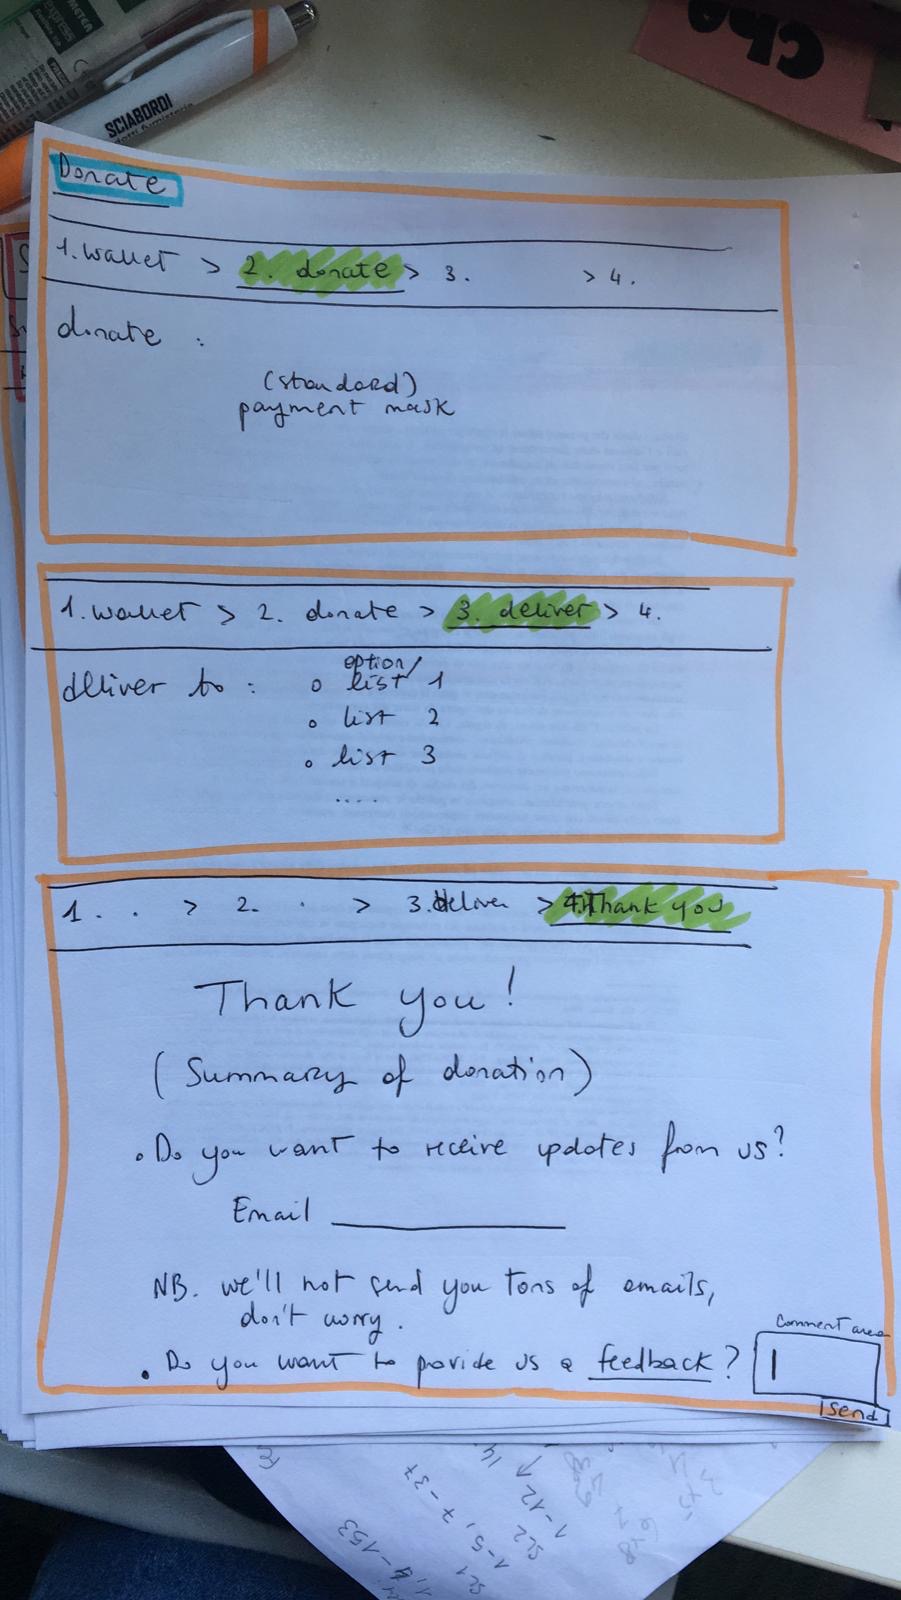 METER
express
SCIABORDI
Cho
Donate
1. wallet > 2. donate > 3. > 4.
donate :
(standard)
payment mask
1. wallet > 2. donate > 3. deliver > 4.
deliver to : o option/
list 1
o list 2
o list 3
....
1. . > 2. . > 3. deliver > 4. Thank you
Thank you!
(Summary of donation)
. Do you want to receive updates from us?
Email
NB. we'll not send you tons of emails,
don't worry.
Comment area
. Do you want to provide us a feedback?
Send
14
1-12
SL2
1-5, 7-37
SL1